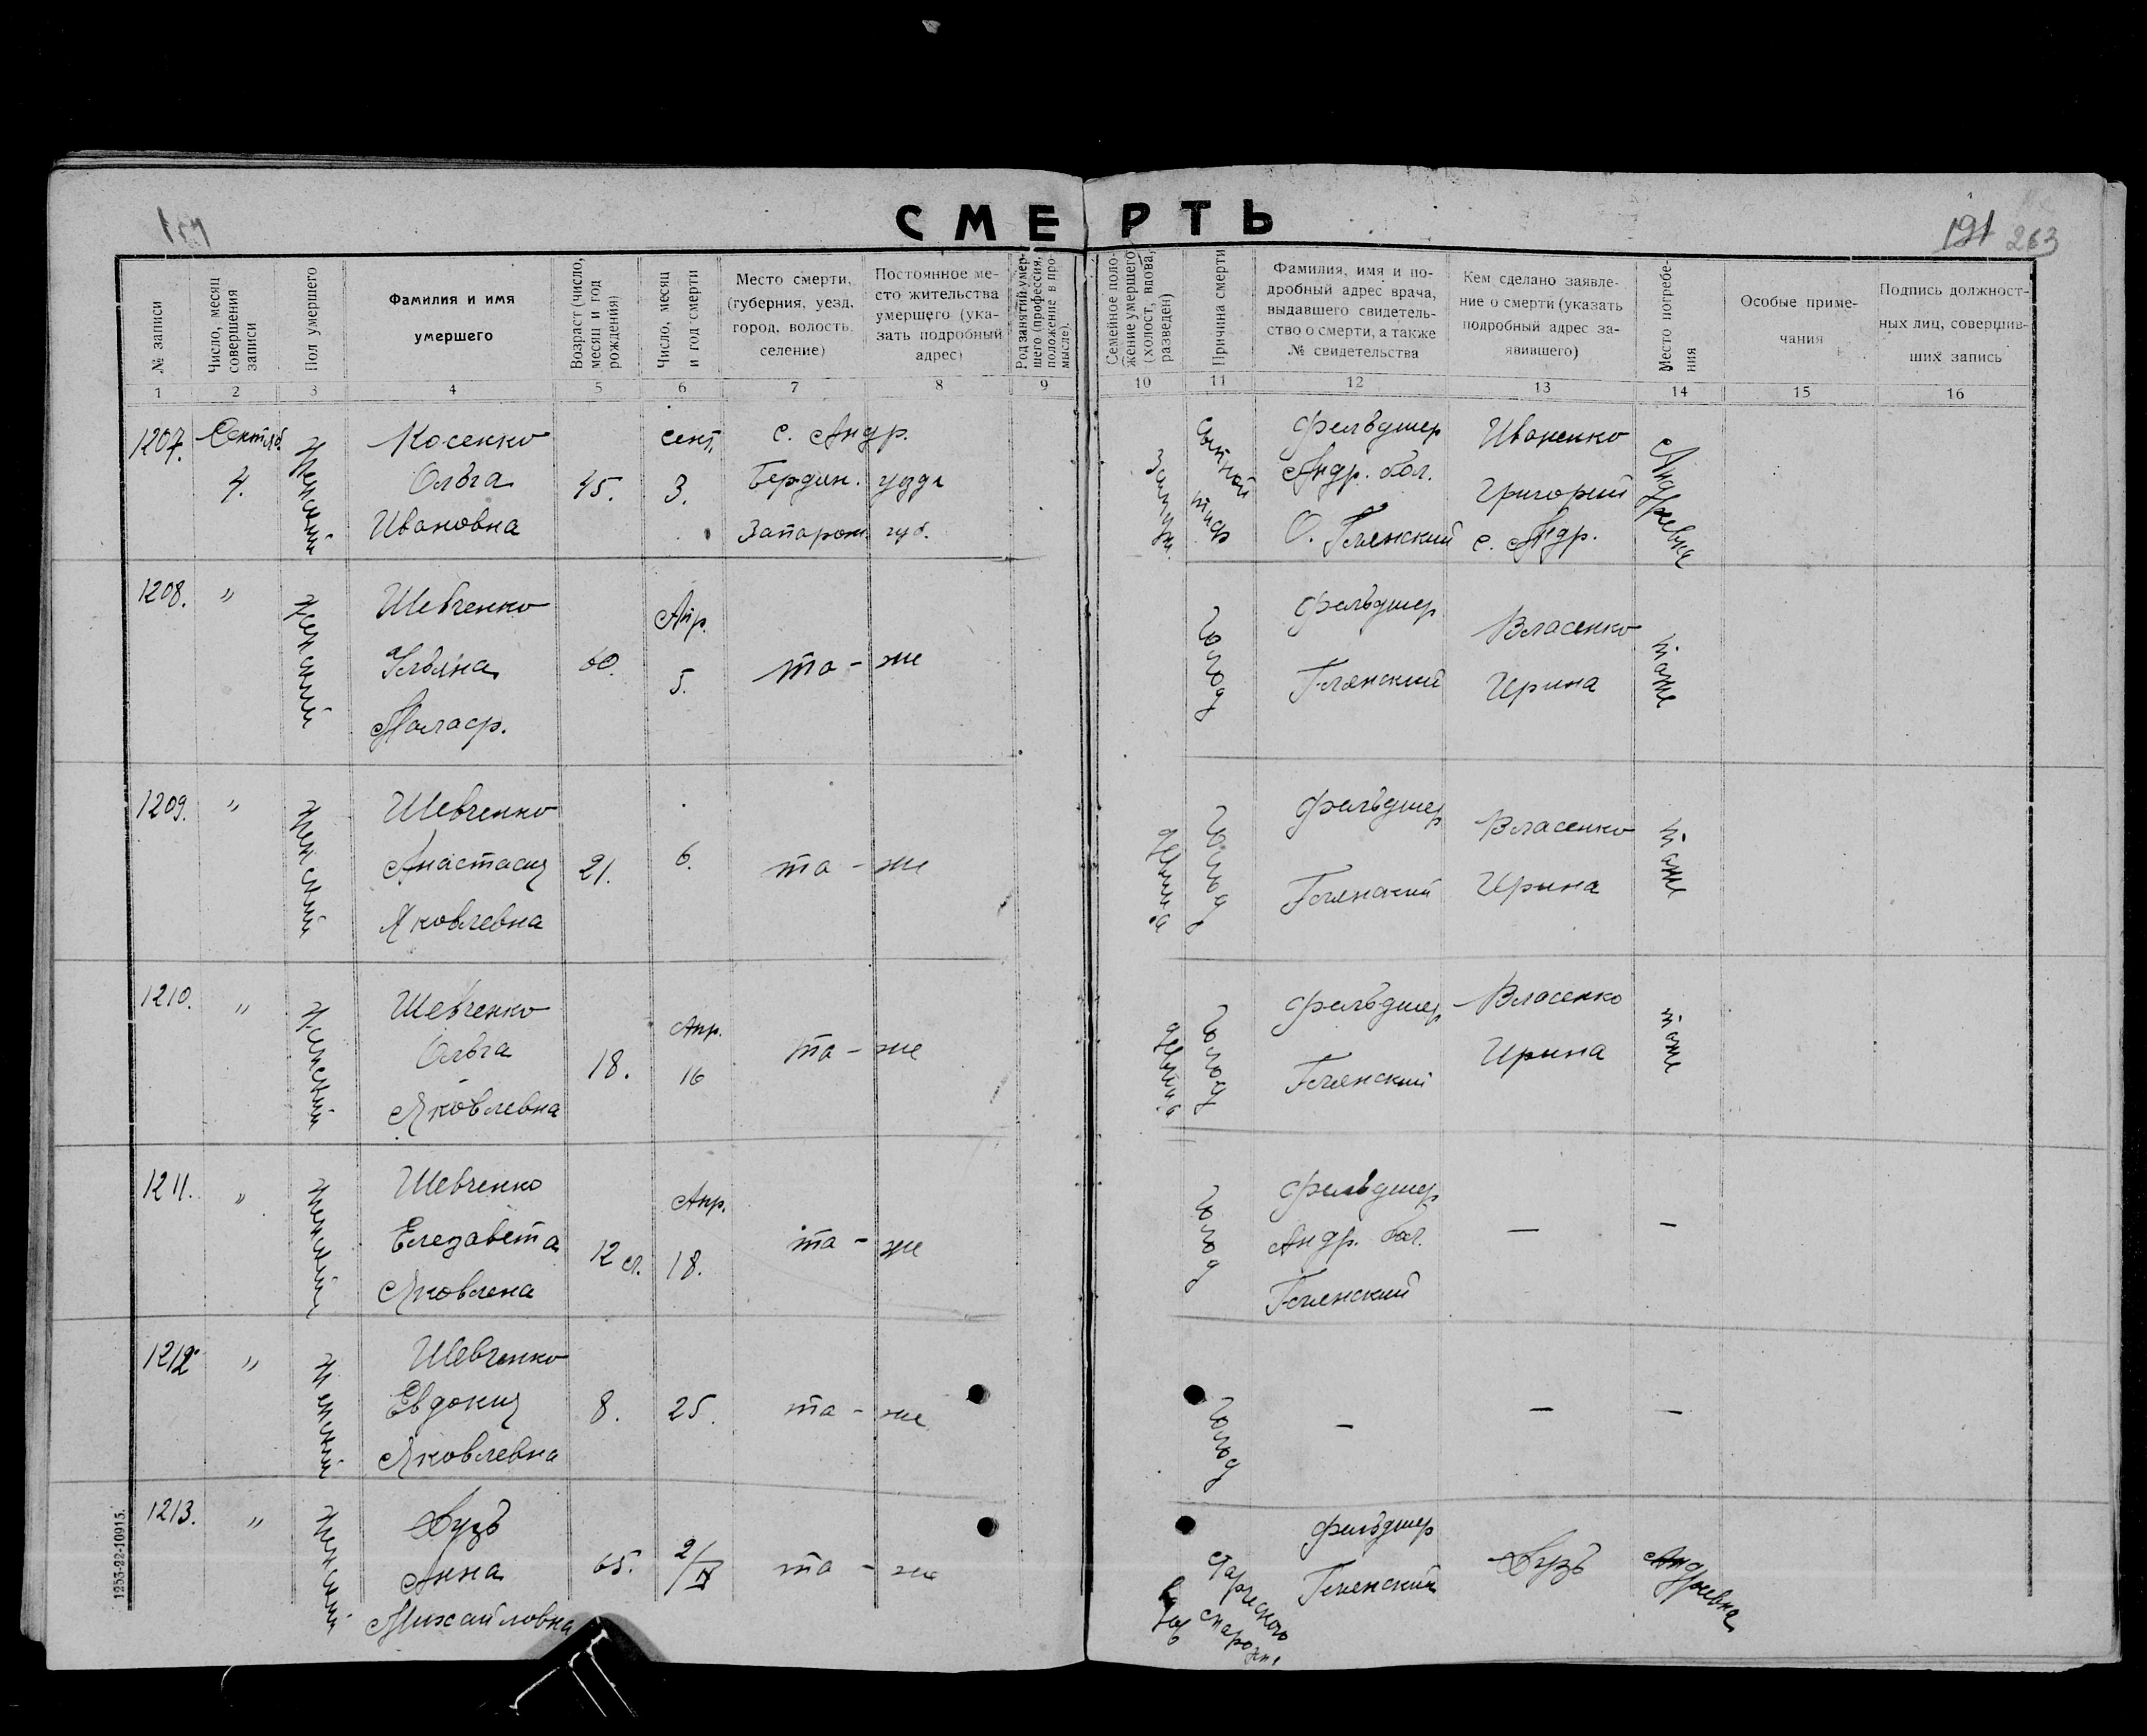 СМЕРТЬ
191 263
№ записи
Число, месяц совершения записи
Пол умершего
Фамилия и имя
умершего
Возраст (число, месяц и год рождения)
Число, месяц и год смерти
Место смерти, (губерния, уезд, город, волость, селение)
Постоянное место жительства умершего (указать подробный адрес)
Род занятий умершего (профессия, положение в промысле).
Семейное положение умершего (холост, вдова, разведен)
Причина смерти
Фамилия, имя и подробный адрес врача, выдавшего свидетельство о смерти, а также № свидетельства
Кем сделано заявление о смерти (указать подробный адрес заявившего)
Место погребения
Особые примечания
Подпись должностных лиц, совершивших запись
1 2 3 4 5 6 7 8 9 10 11 12 13 14 15 16
1207. Сентяб. 4. Женский
Косенко
Ольга
Ивановна
45. сент. 3.
с. Андр.
Бердян. уезда
Запорож. губ.
Замужн. сыпной тиф
Фельдшер
Андр. бол.
Иваненко
Григорий
с. Андр.
Андреевка
1208. " Женский
Шевченко
Ульяна
60. Апр. 5. та-же
голод
Фельдшер
Власенко
Ирина
таже
1209. " Женский
Шевченко
Анастасия
Яковлевна
21. 6. та-же
голод
Фельдшер
Власенко
Ирина
таже
1210. " Женский
Шевченко
Ольга
Яковлевна
18. Апр. 16 та-же
голод
Фельдшер
Власенко
Ирина
таже
1211. " Женский
Шевченко
Елезавета
Яковлена
12 л. Апр. 18. та-же
голод
Фельдшер
Андр. бол.
— —
1212 " Женский
Шевченко
Евдокия
Яковлевна
8. 25. та-же
голод
— — —
1213. " Женский
Анна
Михайловна
65. 2/IX та-же
старости
Фельдшер
Андреевка
1253-22-10915.